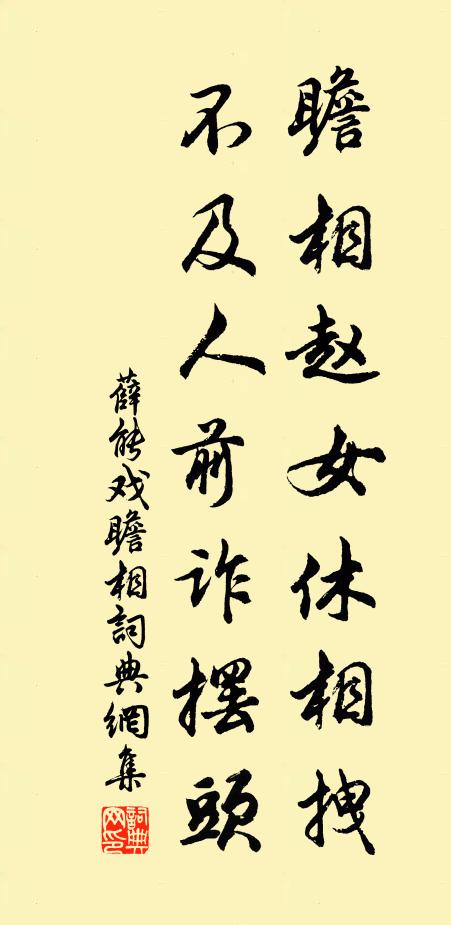 瞻相赵女休相拽
不及人前诈摆頭
薛能戏瞻相詞典網集
詞典網印